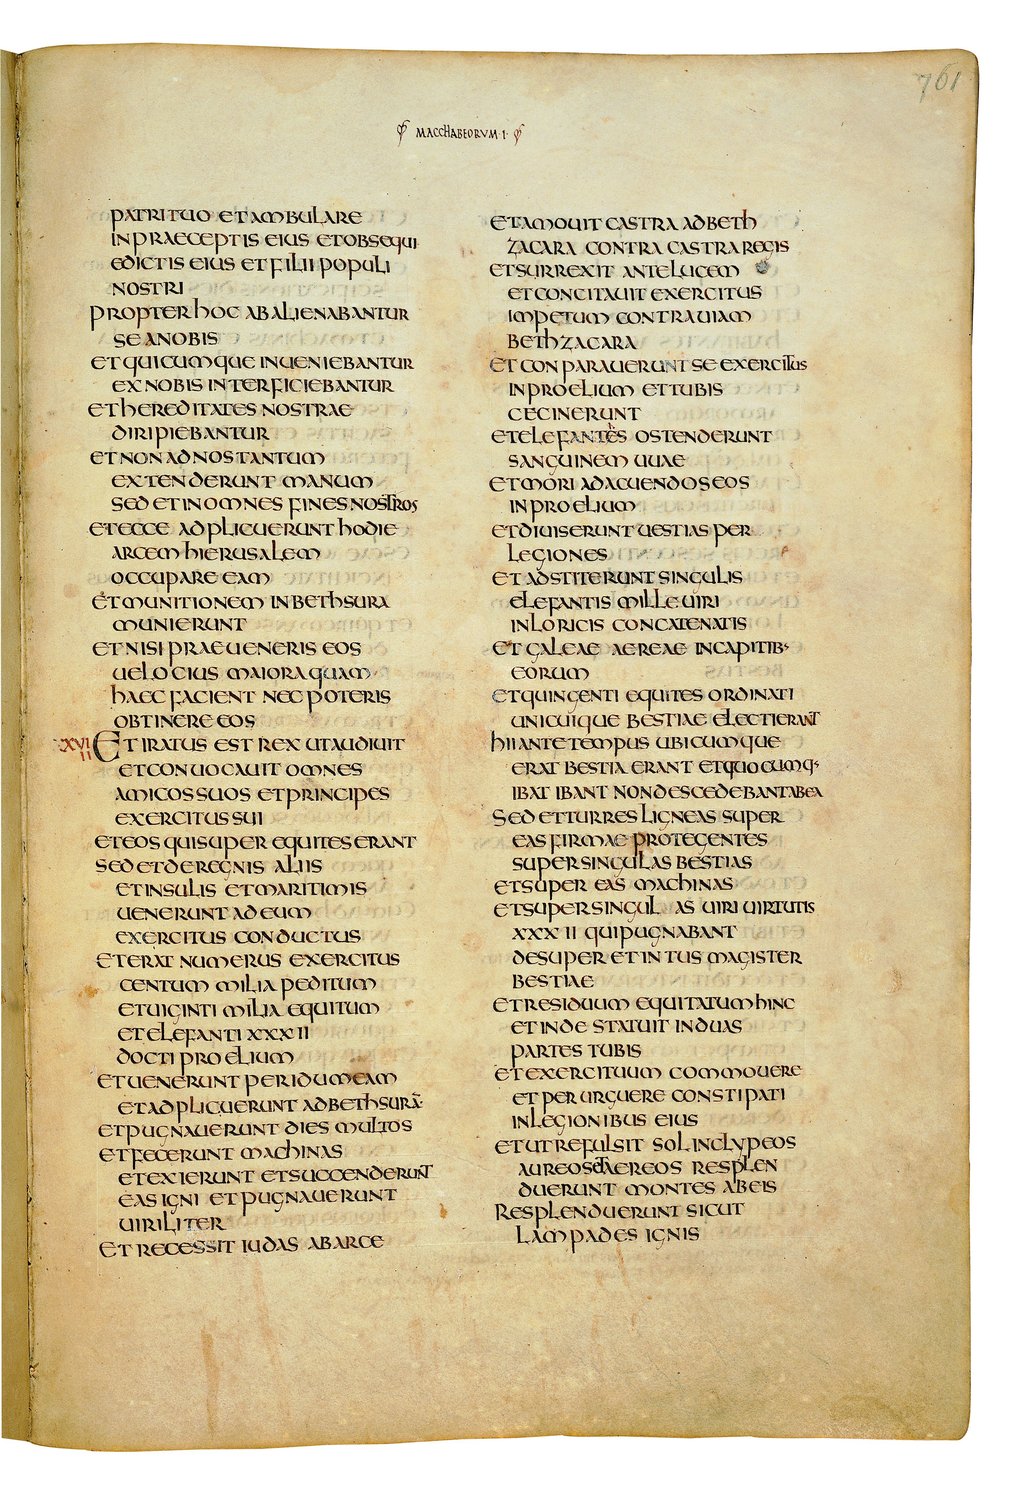 761
MACCHABEORUM·I·
PATRI TUO ET AMBULARE
IN PRAECEPTIS EIUS ET OBSEQUI
EDICTIS EIUS ET FILII POPULI
NOSTRI
PROPTER HOC ABALIENABANTUR
SE A NOBIS
ET QUICUMQUE INUENIEBANTUR
EX NOBIS INTERFICIEBANTUR
ET HEREDITATES NOSTRAE
DIRIPIEBANTUR
ET NON AD NOS TANTUM
EXTENDERUNT MANUM
SED ET IN OMNES FINES NOSTROS
ET ECCE ADPLICUERUNT HODIE
ARCEM HIERUSALEM
OCCUPARE EAM
ET MUNITIONEM IN BETHSURA
MUNIERUNT
ET NISI PRAEUENERIS EOS
UELOCIUS MAIORA QUAM
HAEC FACIENT NEC POTERIS
OBTINERE EOS
XVIII ET IRATUS EST REX UT AUDIUIT
ET CONUOCAUIT OMNES
AMICOS SUOS ET PRINCIPES
EXERCITUS SUI
ET EOS QUI SUPER EQUITES ERANT
SED ET DE REGNIS ALIIS
ET INSULIS ET MARITIMIS
UENERUNT AD EUM
EXERCITUS CONDUCTUS
ET ERAT NUMERUS EXERCITUS
CENTUM MILIA PEDITUM
ET UIGINTI MILIA EQUITUM
ET ELEFANTI XXXII
DOCTI PROELIUM
ET UENERUNT PER IDUMEAM
ET ADPLICUERUNT AD BETHSURĀ·
ET PUGNAUERUNT DIES MULTOS
ET FECERUNT MACHINAS
ET EXIERUNT ET SUCCENDERUNT
EAS IGNI ET PUGNAUERUNT
UIRILITER
ET RECESSIT IUDAS AB ARCE
ET AMOUIT CASTRA AD BETH
ZACARA CONTRA CASTRA REGIS
ET SURREXIT ANTE LUCEM
ET CONCITAUIT EXERCITUS
IMPETUM CONTRA UIAM
BETHZACARA
ET CONPARAUERUNT SE EXERCITUS
IN PROELIUM ET TUBIS
CECINERUNT
ET ELEFANTES OSTENDERUNT
SANGUINEM UUAE
ET MORI AD ACUENDOS EOS
IN PROELIUM
ET DIUISERUNT UESTIAS PER
LEGIONES
ET ADSTITERUNT SINGULIS
ELEFANTIS MILLE UIRI
IN LORICIS CONCATENATIS
ET GALEAE AEREAE IN CAPITIB·
EORUM
ET QUINGENTI EQUITES ORDINATI
UNICUIQUE BESTIAE ELECTI ERANT
HII ANTE TEMPUS UBICUMQUE
ERAT BESTIA ERANT ET QUOCUMQ·
IBAT IBANT NON DESCEDEBANT AB EA
SED ET TURRES LIGNEAS SUPER
EAS FIRMAE PROTEGENTES
SUPER SINGULAS BESTIAS
ET SUPER EAS MACHINAS
ET SUPER SINGULAS UIRI UIRTUTIS
XXXII QUI PUGNABANT
DESUPER ET INTUS MAGISTER
BESTIAE
ET RESIDUUM EQUITATUM HINC
ET INDE STATUIT IN DUAS
PARTES TUBIS
ET EXERCITUUM COMMOUERE
ET PERURGUERE CONSTIPATI
IN LEGIONIBUS EIUS
ET UT REFULSIT SOL IN CLYPEOS
AUREOS ET AEREOS RESPLEN
DUERUNT MONTES AB EIS
RESPLENDUERUNT SICUT
LAMPADES IGNIS